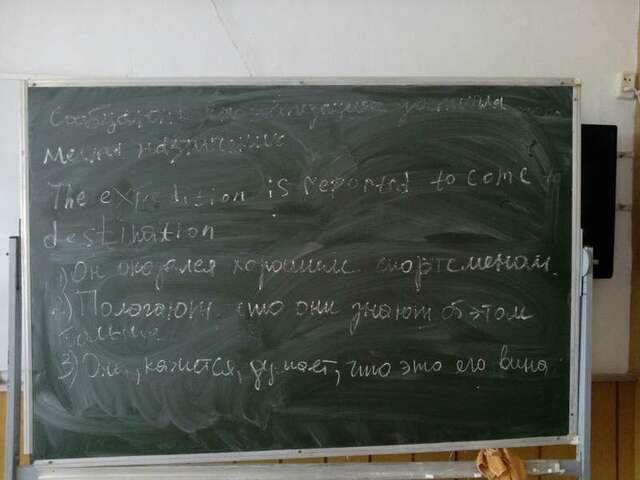 Сообщают, что экспедиция достигла
места назначения
The expedition is reported to come to
destination
1) Он оказался хорошим спортсменом.
2) Полагают что они знают об этом
больше
3) Они, кажется, думает, что это его вина